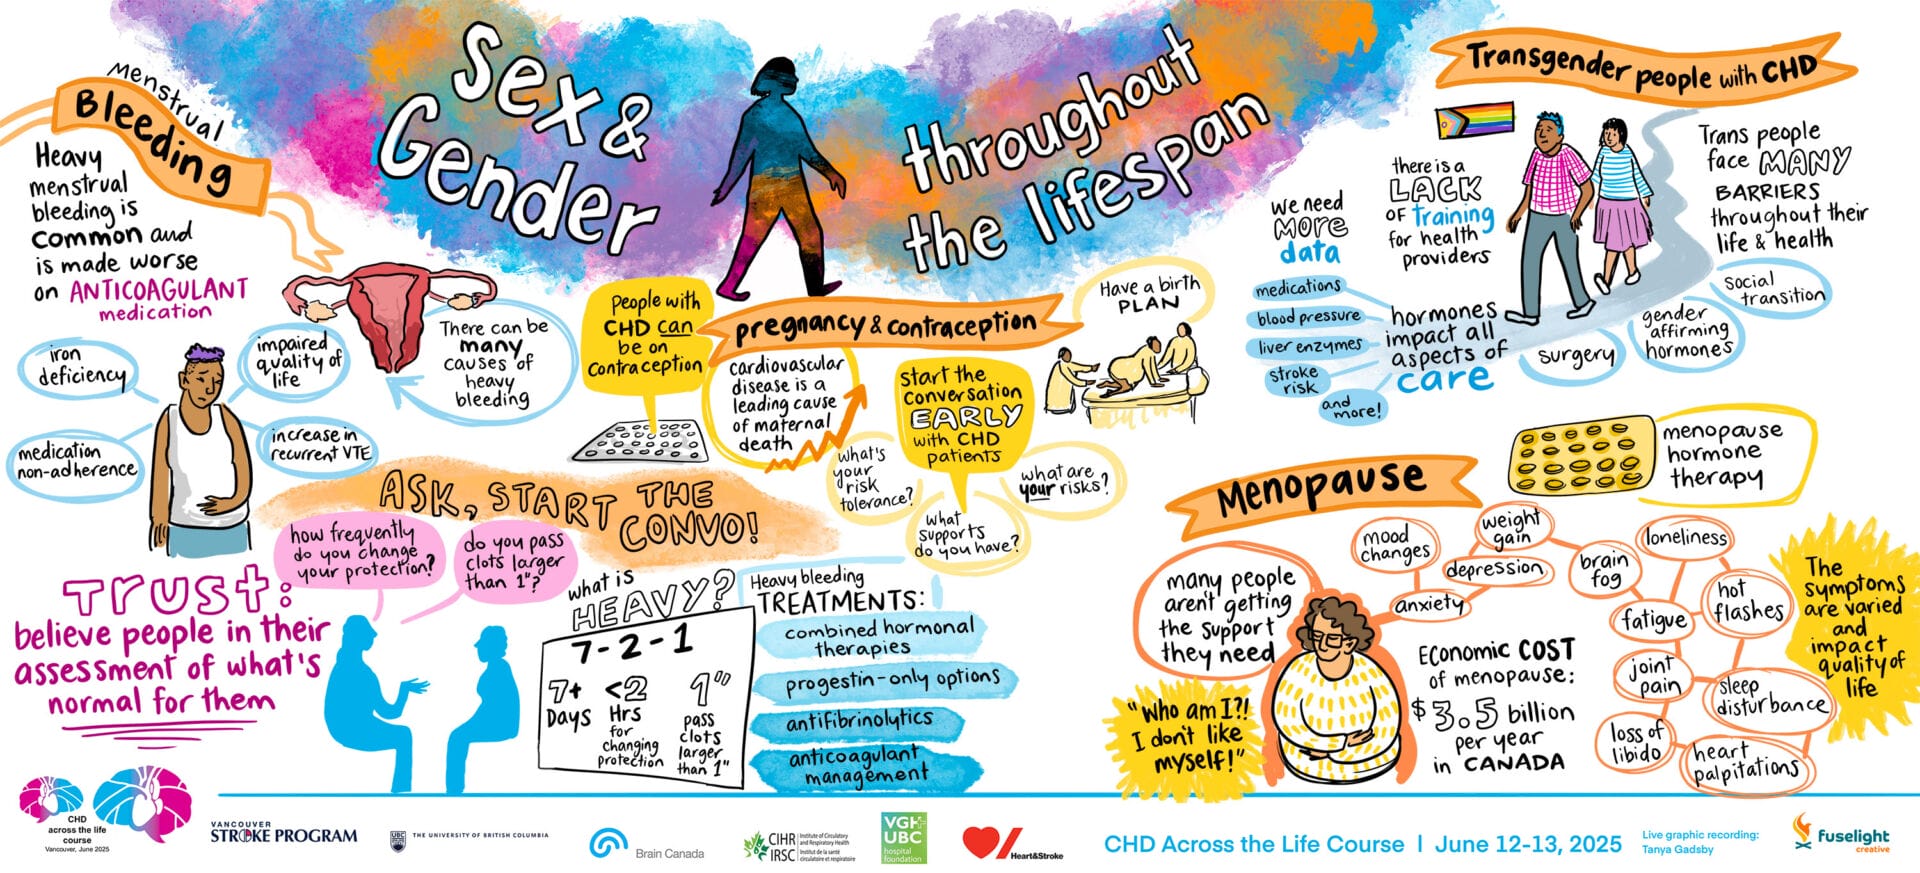 Sex &
Gender
throughout
the lifespan
Menstrual
Bleeding
Heavy
menstrual
bleeding is
common and
is made worse
on ANTICOAGULANT
medication
iron
deficiency
impaired
quality of
life
medication
non-adherence
increase in
recurrent VTE
There can be
many
causes of
heavy
bleeding
ASK, START THE
CONVO!
how frequently
do you change
your protection?
do you pass
clots larger
than 1"?
TRUST:
believe people in their
assessment of what's
normal for them
what is
HEAVY?
7-2-1
7+
Days
<2
Hrs
for
changing
protection
1"
pass
clots
larger
than 1"
Heavy bleeding
TREATMENTS:
combined hormonal
therapies
progestin-only options
antifibrinolytics
anticoagulant
management
People with
CHD can
be on
contraception
pregnancy & contraception
cardiovascular
disease is a
leading cause
of maternal
death
Start the
conversation
EARLY
with CHD
patients
what's
your
risk
tolerance?
what
supports
do you have?
what are
your risks?
Have a birth
PLAN
Transgender people with CHD
we need
MORE
data
there is a
LACK
OF training
for health
providers
Trans people
face MANY
BARRIERS
throughout their
life & health
medications
blood pressure
liver enzymes
stroke
risk
and
more!
hormones
impact all
aspects of
care
surgery
gender
affirming
hormones
social
transition
Menopause
menopause
hormone
therapy
many people
aren't getting
the support
they need
"Who am I?!
I don't like
myself!"
mood
changes
weight
gain
depression
anxiety
brain
fog
loneliness
fatigue
hot
flashes
joint
pain
sleep
disturbance
loss of
libido
heart
palpitations
Economic COST
of menopause:
$3.5 billion
per year
in CANADA
The
symptoms
are varied
and
impact
quality of
life
CHD
across the life
course
Vancouver, June 2025
VANCOUVER
STROKE PROGRAM
UBC
THE UNIVERSITY OF BRITISH COLUMBIA
Brain Canada
CIHR
IRSC
Institute of Circulatory
and Respiratory Health
Institut de la santé
circulatoire et respiratoire
VGH+
UBC
hospital
foundation
Heart&Stroke
CHD Across the Life Course | June 12-13, 2025
Live graphic recording:
Tanya Gadsby
fuselight
creative